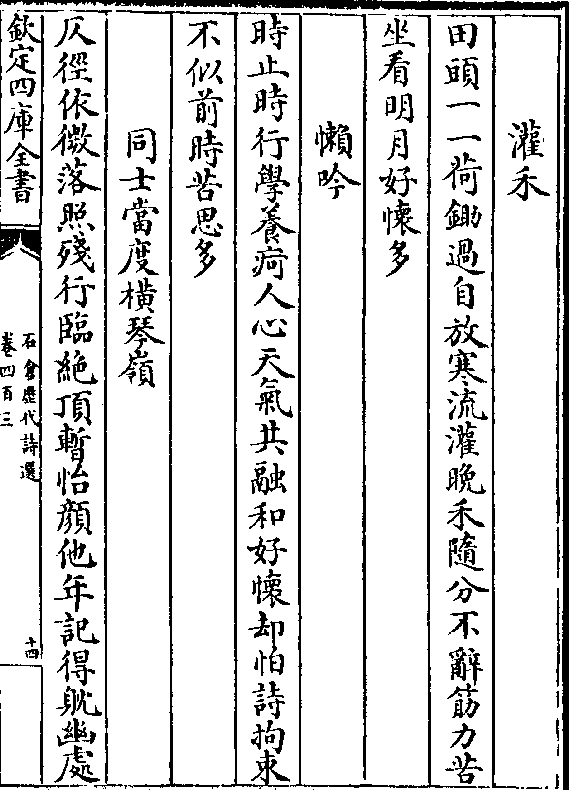 灌禾
田頭一一荷鋤過自放寒流灌晚禾隨分不辭筋力苦
坐看明月好懷多
懶吟
時止時行學養疴人心天氣共融和好懷却怕詩拘束
不似前時苦思多
同士當度橫琴嶺
仄徑依微落照殘行臨絶頂暫怡顔他年記得躭幽處
欽定四庫全書
石倉歷代詩選
卷四百三
十四